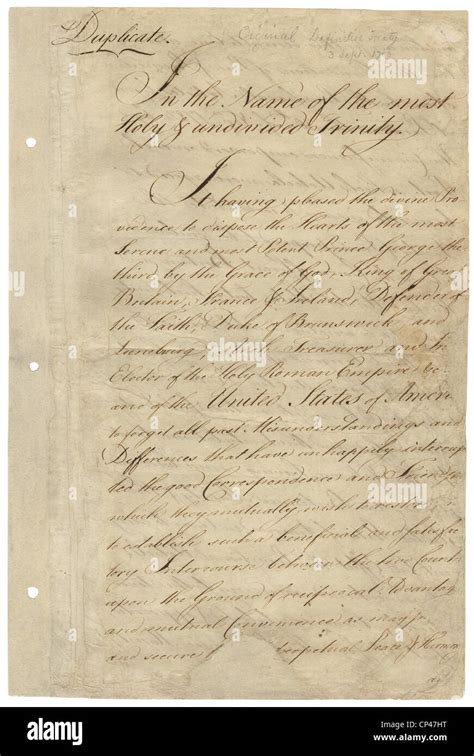 Duplicate.
Original Definitive Treaty
3 Sept. 17
In the Name of the most
Holy & undivided Trinity.
It having pleased the divine Pro
vidence to dispose the Hearts of the most
Serene and most Potent Prince George the
third, by the Grace of God, King of Grea
Britain, France & Ireland, Defender of
the Faith, Duke of Brunswick and
Lunebourg Treasurer and
Elector of the Holy Roman Empire &c.
and of the United States of Ameri
to forget all past Misunderstandings and
Differences that have unhappily interrup
ted the good Correspondence and Friends
which they mutually wish to restore;
to establish such a beneficial and satisfac
tory Intercourse between the two Count
upon the Ground of reciprocal Advantag
and mutual Convenience as may
and secure perpetual Peace & Harmon
alamy
alamy
alamy
Image ID: CP47HT
www.alamy.com